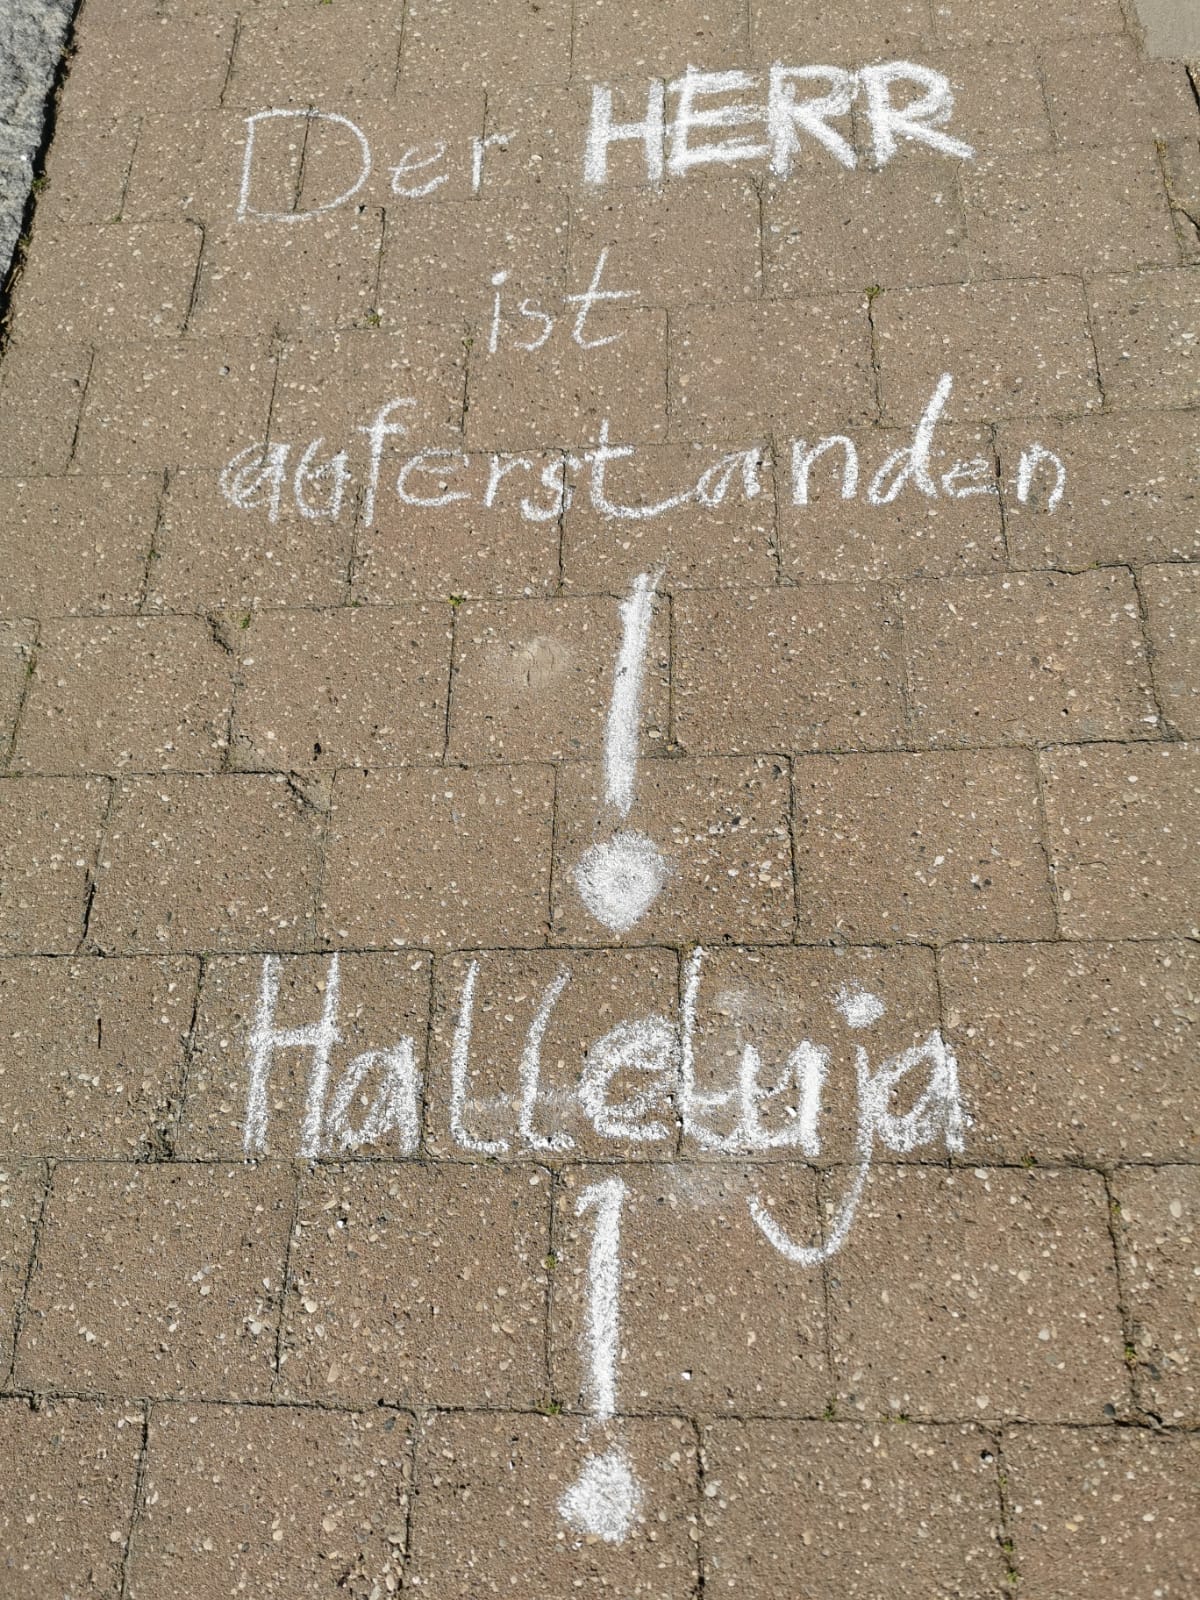 Der HERR
ist
auferstanden
!
Halleluja
!